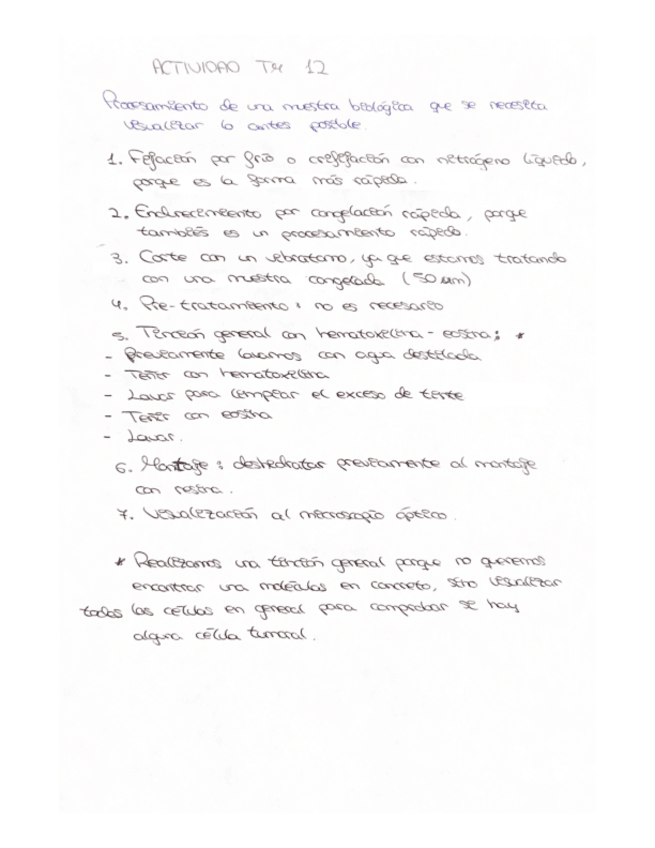 ACTIVIDAD T4 12
Procesamiento de una muestra biológica que se necesita
visualizar lo antes posible.
1. Fijación por frío o criofijación con nitrógeno líquido,
porque es la forma más rápida.
2. Endurecimiento por congelación rápida, porque
también es un procesamiento rápido.
3. Corte con un vibratomo, ya que estamos tratando
con una muestra congelada (50 um)
4. Pre-tratamiento: no es necesario
5. Tinción general con hematoxilina - eosina; *
- Previamente lavamos con agua destilada
- Teñir con hematoxilina
- Lavar para limpiar el exceso de tinte
- Teñir con eosina
- Lavar.
6. Montaje: deshidratar previamente al montaje
con resina.
7. Visualización al microscopio óptico.
* Realizamos una tinción general porque no queremos
encontrar una moléculas en concreto, sino visualizar
todas las células en general para comprobar si hay
alguna célula tumoral.